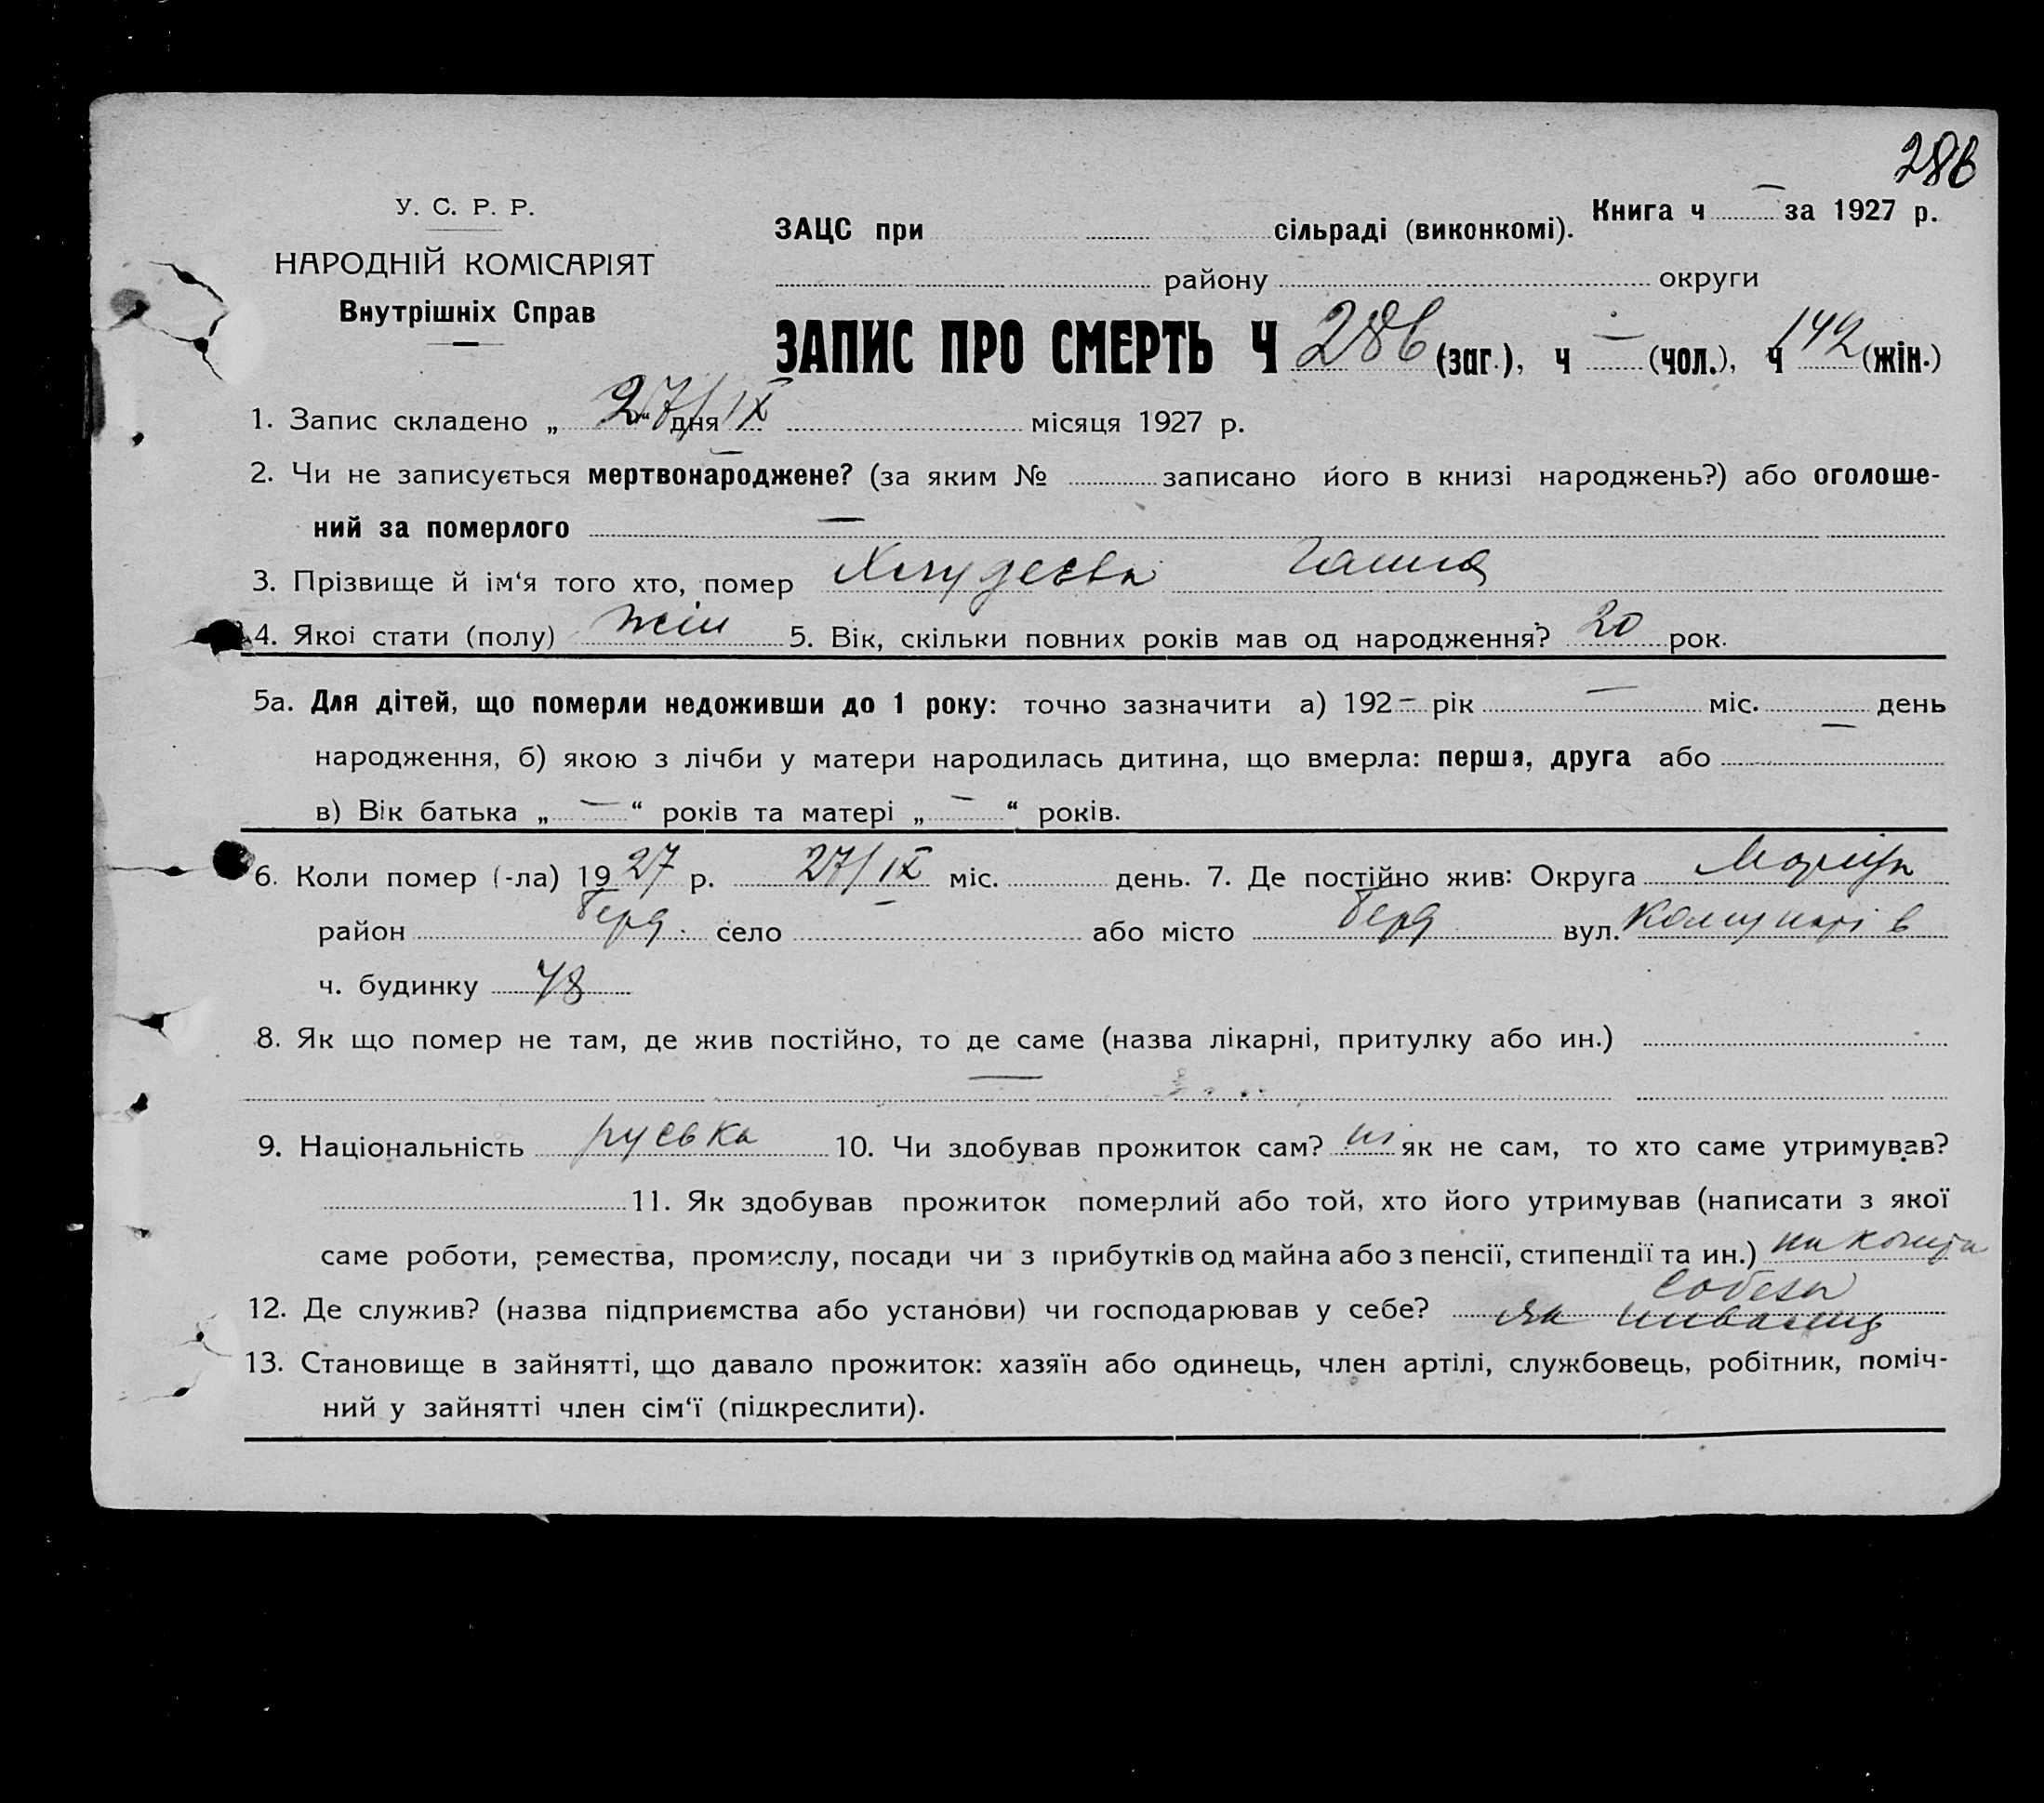 286
У. С. Р. Р.
НАРОДНІЙ КОМІСАРІЯТ
Внутрішніх Справ
Книга ч — за 1927 р.
ЗАЦС при сільраді (виконкомі).
району округи
ЗАПИС ПРО СМЕРТЬ Ч 286 (заг.), ч — (чол.), ч 142 (жін.)
1. Запис складено „27/IX“ дня місяця 1927 р.
2. Чи не записується мертвонароджене? (за яким № — записано його в книзі народжень?) або оголоше-
ний за померлого —
3. Прізвище й ім‘я того хто, помер Ганна
4. Якої стати (полу) жін 5. Вік, скільки повних років мав од народження? 20 рок.
5а. Для дітей, що померли недоживши до 1 року: точно зазначити а) 192— рік — міс. — день
народження, б) якою з лічби у матери народилась дитина, що вмерла: перша, друга або
в) Вік батька „—“ років та матері „—“ років.
6. Коли помер (-ла) 1927 р. 27/IX міс. день. 7. Де постійно жив: Округа Маріуп
район Берд. село — або місто Берд вул. Комунарів
ч. будинку 48
8. Як що помер не там, де жив постійно, то де саме (назва лікарні, притулку або ин.)
—
9. Національність руська 10. Чи здобував прожиток сам? ні як не сам, то хто саме утримував?
11. Як здобував прожиток померлий або той, хто його утримував (написати з якої
саме роботи, ремества, промислу, посади чи з прибутків од майна або з пенсії, стипендії та ин.) на кошта
собеза
12. Де служив? (назва підприємства або установи) чи господарював у себе? як инвалид
13. Становище в зайнятті, що давало прожиток: хазяїн або одинець, член артілі, службовець, робітник, поміч-
ний у зайнятті член сім‘ї (підкреслити).